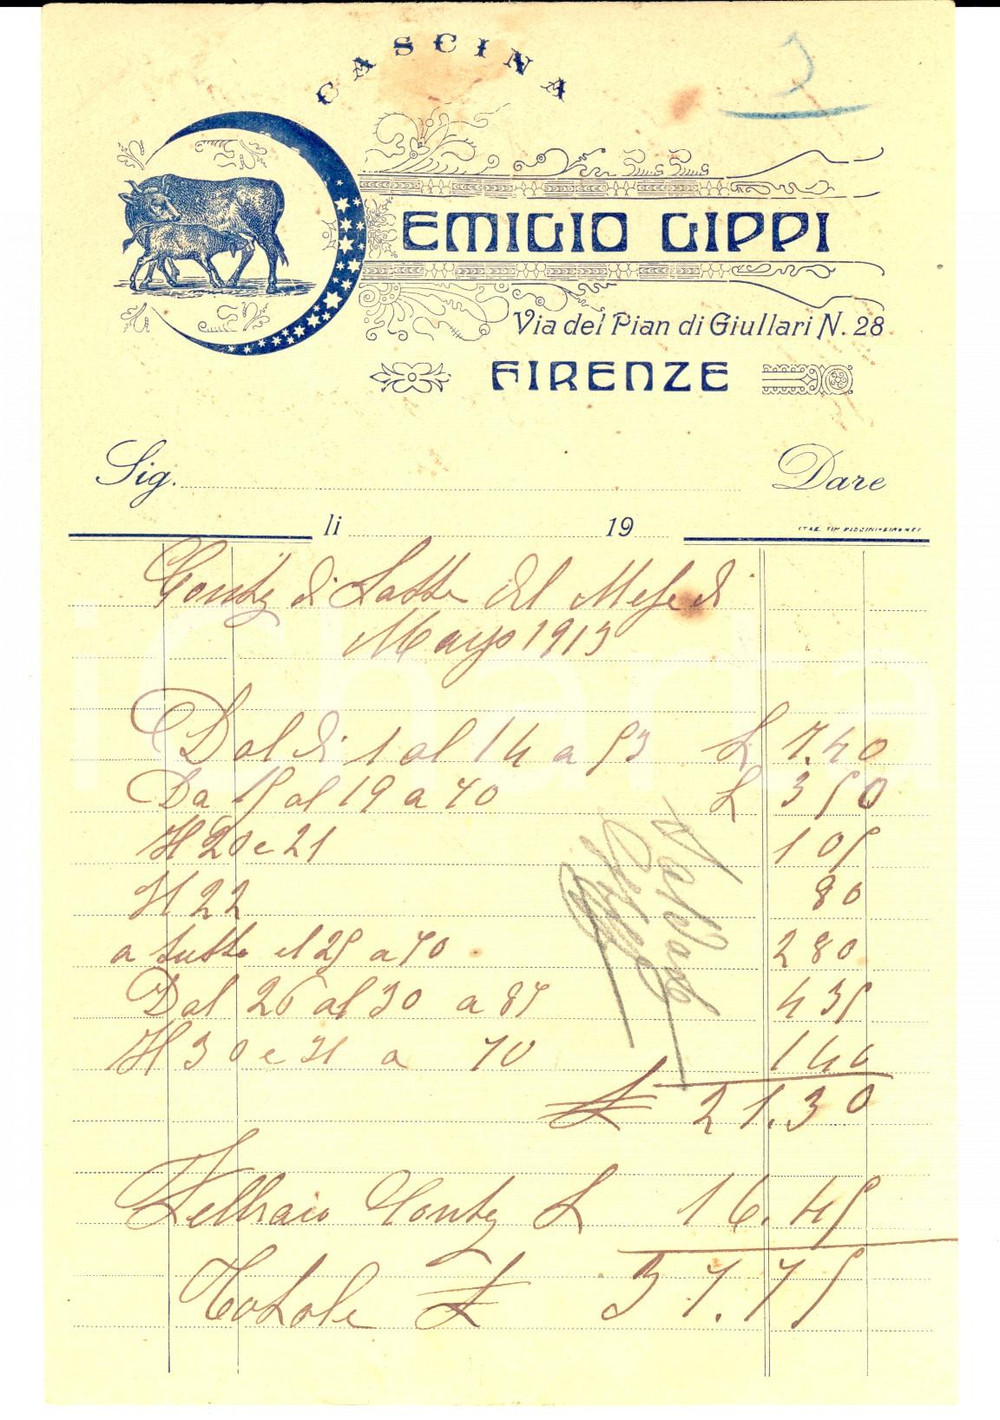 CASCINA
EMILIO LIPPI
Via del Pian di Giullari N. 28
FIRENZE
Sig. Dare
li 19
Conto di Latte del Mese di
Maggio 1913
Dal di 1 al 14 a 53 L 7.40
Da 15 al 19 a 70 L 3 50
Il 20 e 21 1 05
Il 22 80
a tutto il 25 a 70 2 80
Dal 26 al 30 a 87 4 35
Il 30 e 31 a 70 1 40
£ 21.30
Febbraio Conto L 16.45
Totale £ 37.75